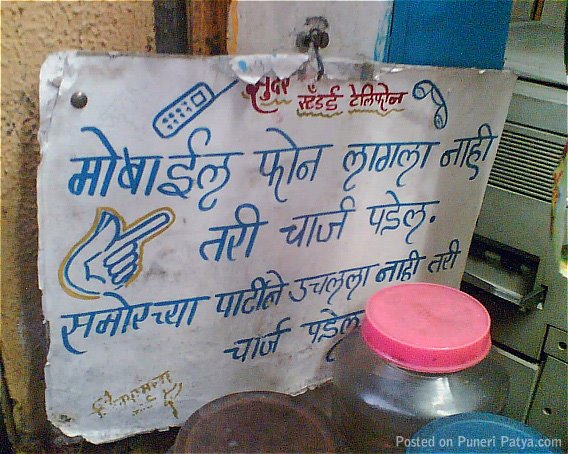 सुंदर
स्टँडर्ड टेलिफोन
मोबाईल फोन लागला नाही
तरी चार्ज पडेल.
समोरच्या पार्टीने उचलला नाही तरी
चार्ज पडेल
Posted on Puneri Patya.com